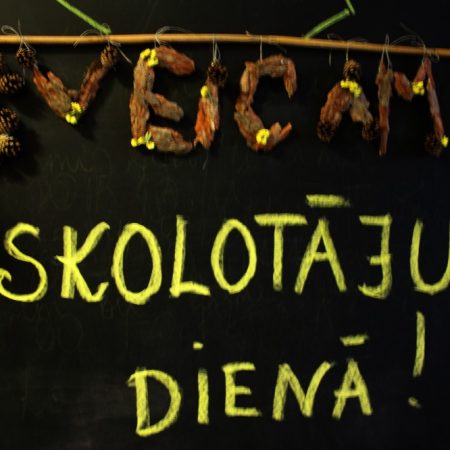 VEICAM
SKOLOTĀJU
DIENĀ!